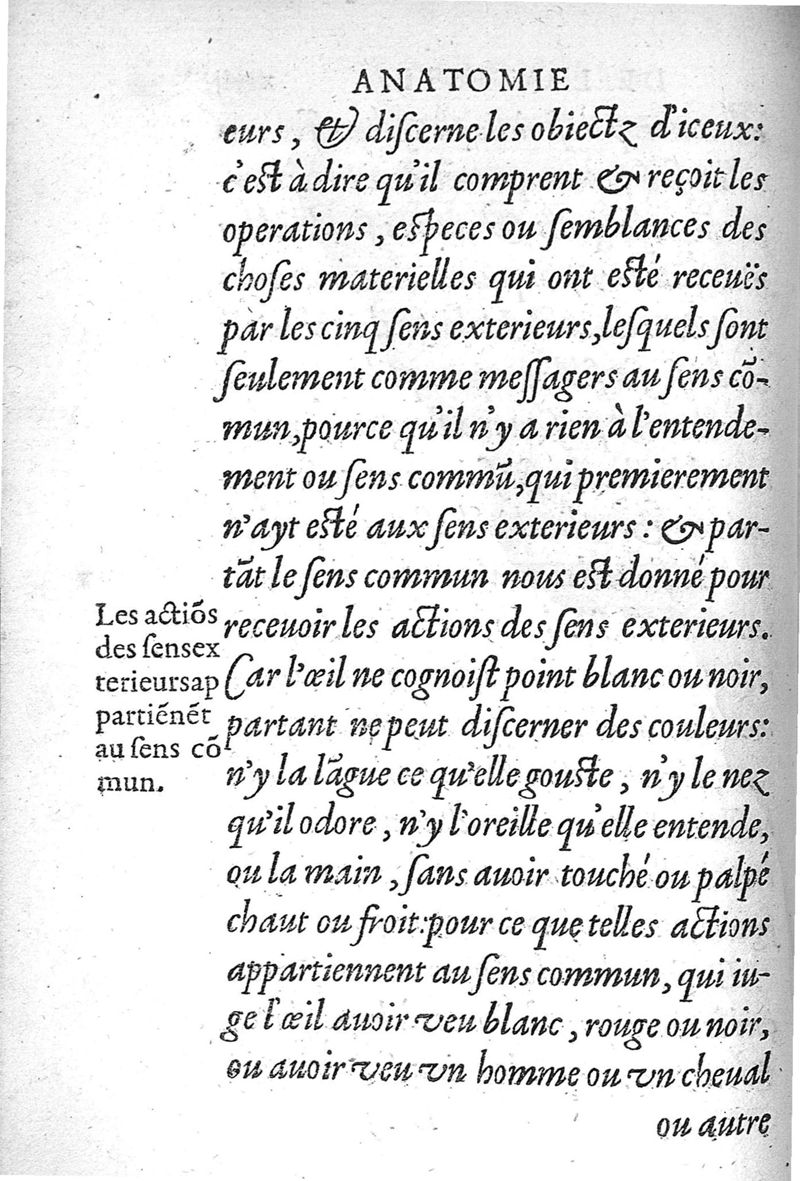 ANATOMIE
eurs, & diſcerne les obiectz d'iceux:
c'eſt à dire qu'il comprent & reçoit les
operations, eſpeces ou ſemblances des
choſes materielles qui ont eſté receuës
par les cinq ſens exterieurs, leſquels ſont
ſeulement comme meſſagers au ſens cõ-
mun, pource qu'il n'y a rien à l'entende-
ment ou ſens commũ, qui premierement
n'ayt eſté aux ſens exterieurs: & par-
tãt le ſens commun nous eſt donné pour
receuoir les actions des ſens exterieurs.
Car l'œil ne cognoiſt point blanc ou noir,
partant ne peut diſcerner des couleurs:
n'y la lãgue ce qu'elle gouſte, n'y le nez
qu'il odore, n'y l'oreille qu'elle entende,
ou la main, ſans auoir touché ou palpé
chaut ou froit: pour ce que telles actions
appartiennent au ſens commun, qui iu-
ge l'œil auoir veu blanc, rouge ou noir,
ou auoir veu vn homme ou vn cheual
ou autre
Les actiõs
des ſens ex
terieurs ap
partiẽnẽt
au ſens cõ
mun.